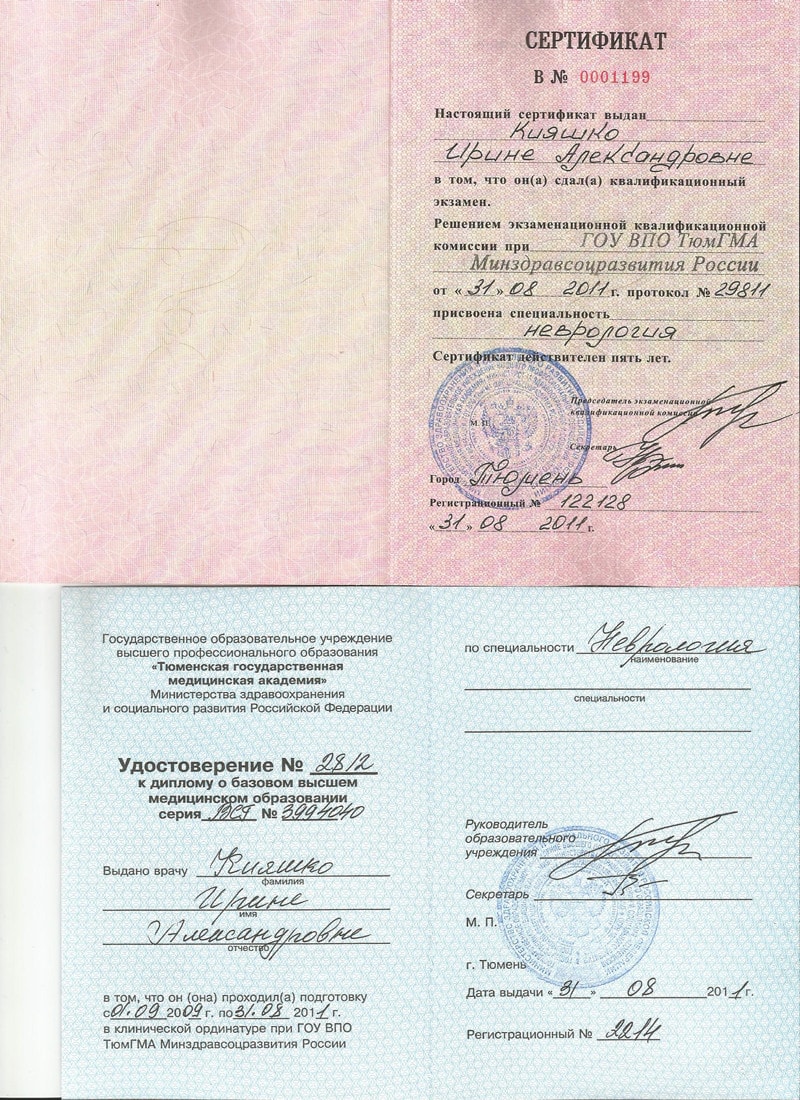 СЕРТИФИКАТ
В № 0001199
Настоящий сертификат выдан
Кияшко
Ирине Александровне
в том, что он(а) сдал(а) квалификационный
экзамен.
Решением экзаменационной квалификационной
комиссии при ГОУ ВПО ТюмГМА
Минздравсоцразвития России
от « 31 » 08 2011 г. протокол № 29811
присвоена специальность
неврология
Сертификат действителен пять лет.
Председатель экзаменационной
квалификационной комиссии
М. П.
Секретарь
Город Тюмень
Регистрационный № 122128
« 31 » 08 2011 г.
Государственное образовательное учреждение
высшего профессионального образования
«Тюменская государственная
медицинская академия»
Министерства здравоохранения
и социального развития Российской Федерации
Удостоверение № 28/2
к диплому о базовом высшем
медицинском образовании
серия ВСГ № 3994040
Выдано врачу Кияшко
фамилия
Ирине
имя
Александровне
отчество
в том, что он (она) проходил(а) подготовку
с 01.09 2009 г. по 31.08 2011 г.
в клинической ординатуре при ГОУ ВПО
ТюмГМА Минздравсоцразвития России
по специальности Неврология
наименование
специальности
Руководитель
образовательного
учреждения
Секретарь
М. П.
г. Тюмень
Дата выдачи « 31 » 08 2011 г.
Регистрационный № 2214